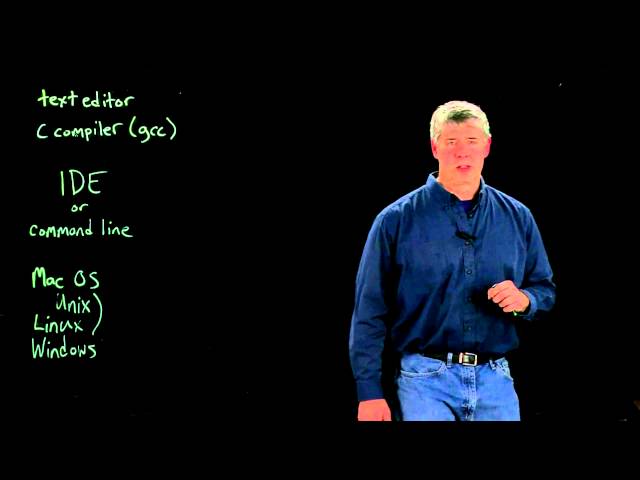 text editor
C compiler (gcc)
IDE
or
command line
Mac OS
Unix)
Linux)
Windows